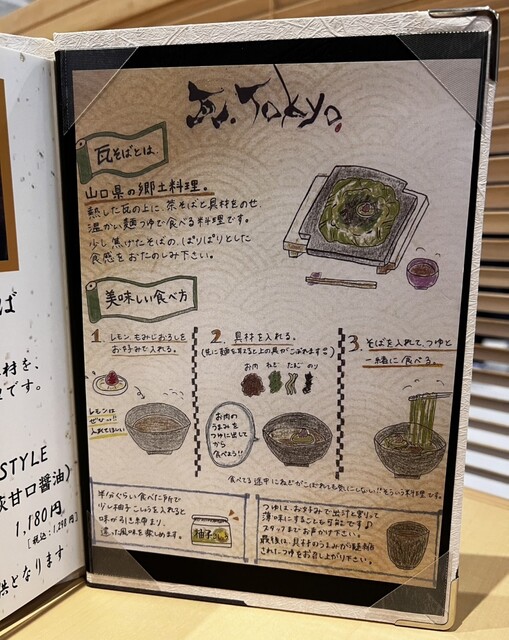 瓦.Tokyo.
瓦そばとは
山口県の郷土料理。
熱した瓦の上に、茶そばと具材をのせ、
温かい麺つゆで食べる料理です。
少し焦げたそばの、ぱりぱりとした
食感をおたのしみ下さい。
美味しい食べ方
1. レモン、もみじおろしを
お好みで入れる。
レモンは
ぜひ!!
入れてほしい
2. 具材を入れる。
お肉 ねぎ たまご のり
お肉の
うまみを
つゆに出して
から
食べよう!!
3. そばを入れて、つゆと
一緒に食べる。
食べてる途中にねぎがこぼれても気にしない!!そういう料理です。
半分ぐらい食べた所で
少し柚子こしょうを入れると
味が引き締まり、
違った風味を楽しめます。
柚子
つゆは、お好みで出汁と割って
薄味にすることも可能です♪
スタッフまでお声かけ下さい。
最後は、具材のうまみが凝縮
されたつゆをお召し上がり下さい。
ば
材を、
です。
STYLE
淡甘口醤油)
1,180円
[税込:1,298円]
供となります